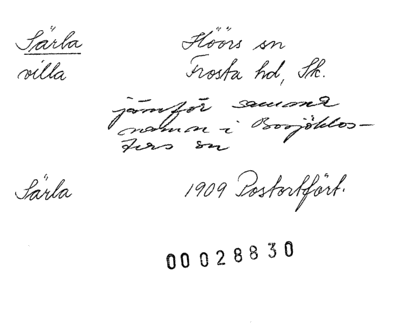 Särla Höörs sn
villa Frosta hd, Sk.
jämför samma
namn i Bosjöklos-
ters sn
Särla 1909 Postortfört.
00028830